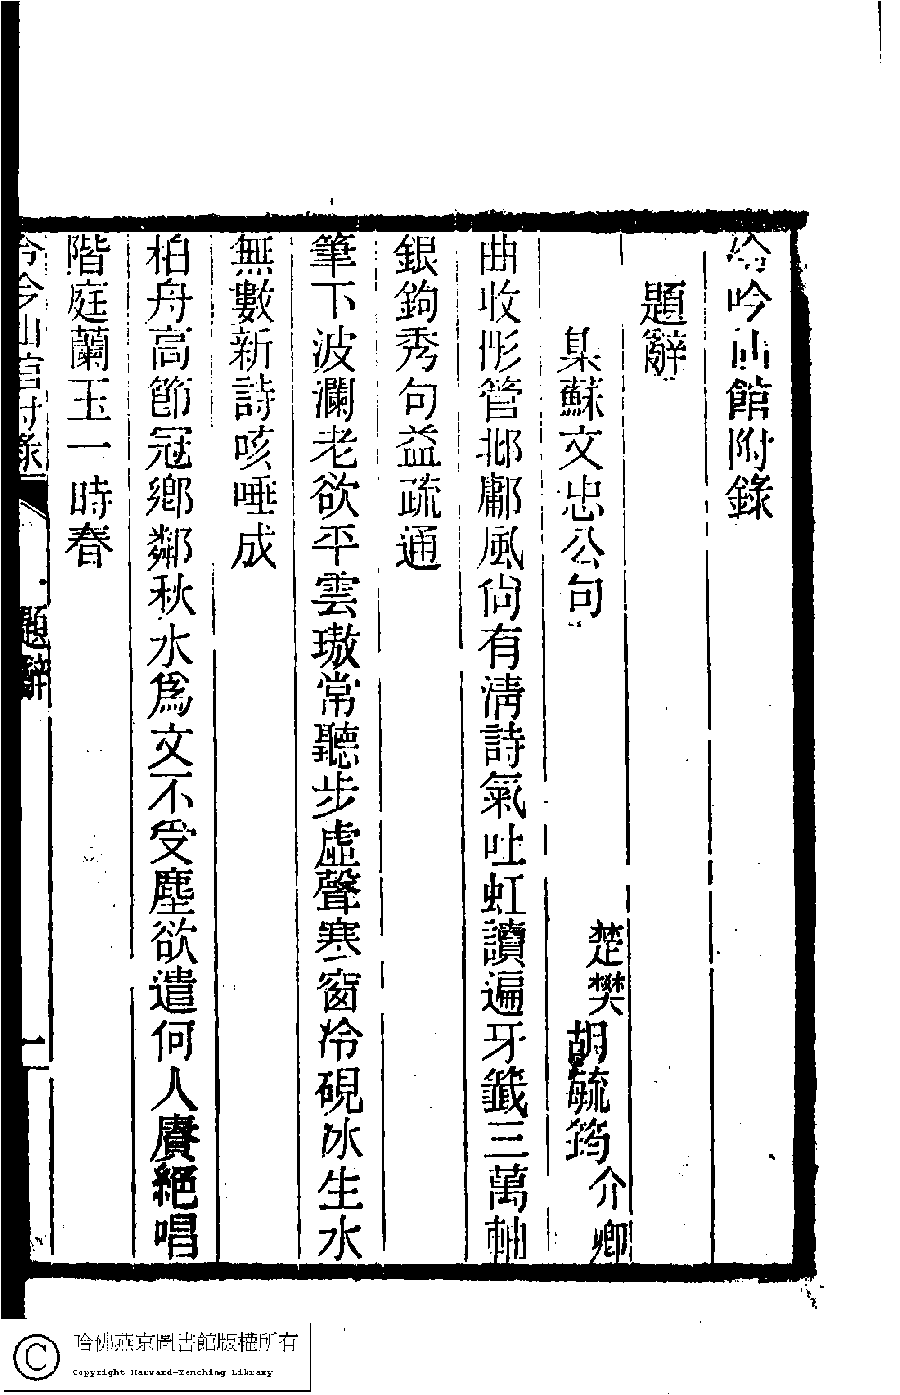 冷吟仙館附錄
題辭
集蘇文忠公句
楚樊胡毓筠介卿
曲收彤管邶鄘風尙有淸詩氣吐虹讀遍牙籤三萬軸
銀鉤秀句益疏通
筆下波瀾老欲平雲璈常聽步虛聲寒窗冷硯冰生水
無數新詩咳唾成
柏舟高節冠鄕鄰秋水爲文不受塵欲遣何人賡絕唱
階庭蘭玉一時春
冷吟仙館附錄
題辭
一
哈佛燕京圖書館版權所有
Copyright Harvard-Yenching Library